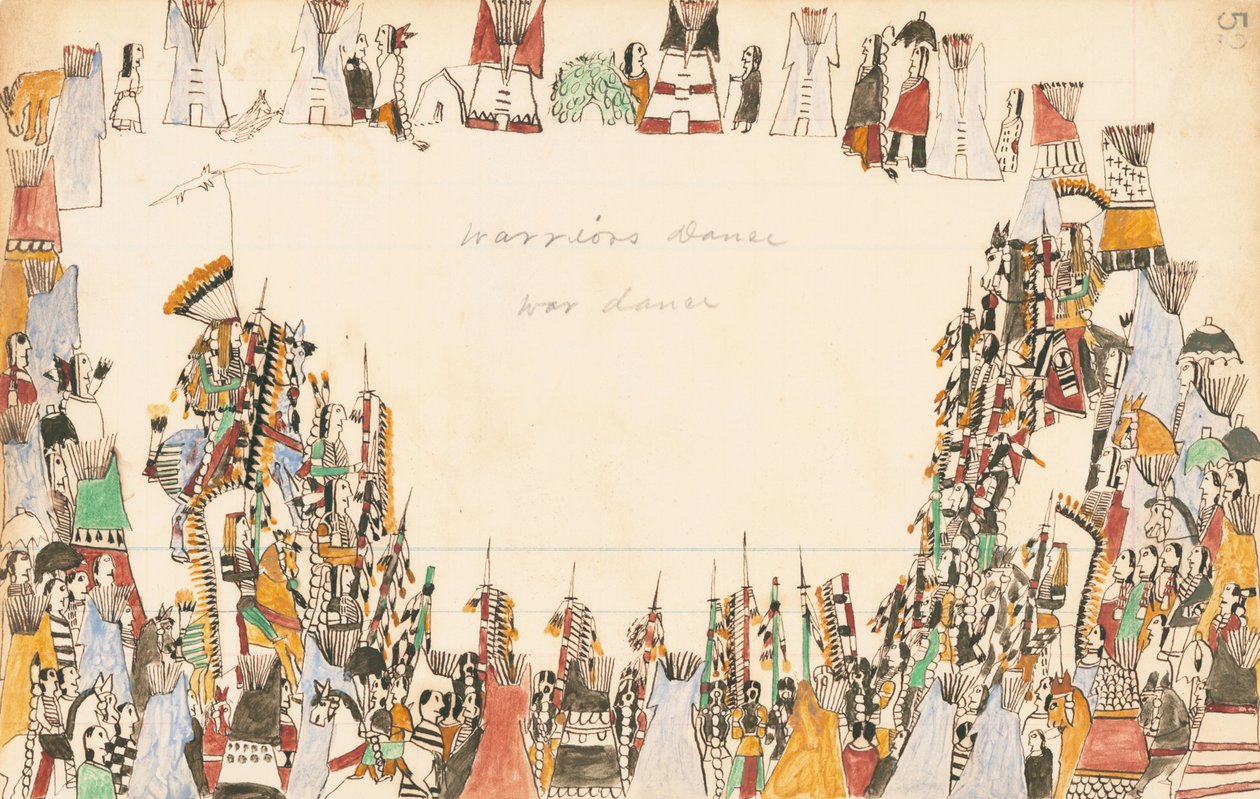 Warriors Dance
War dance
53